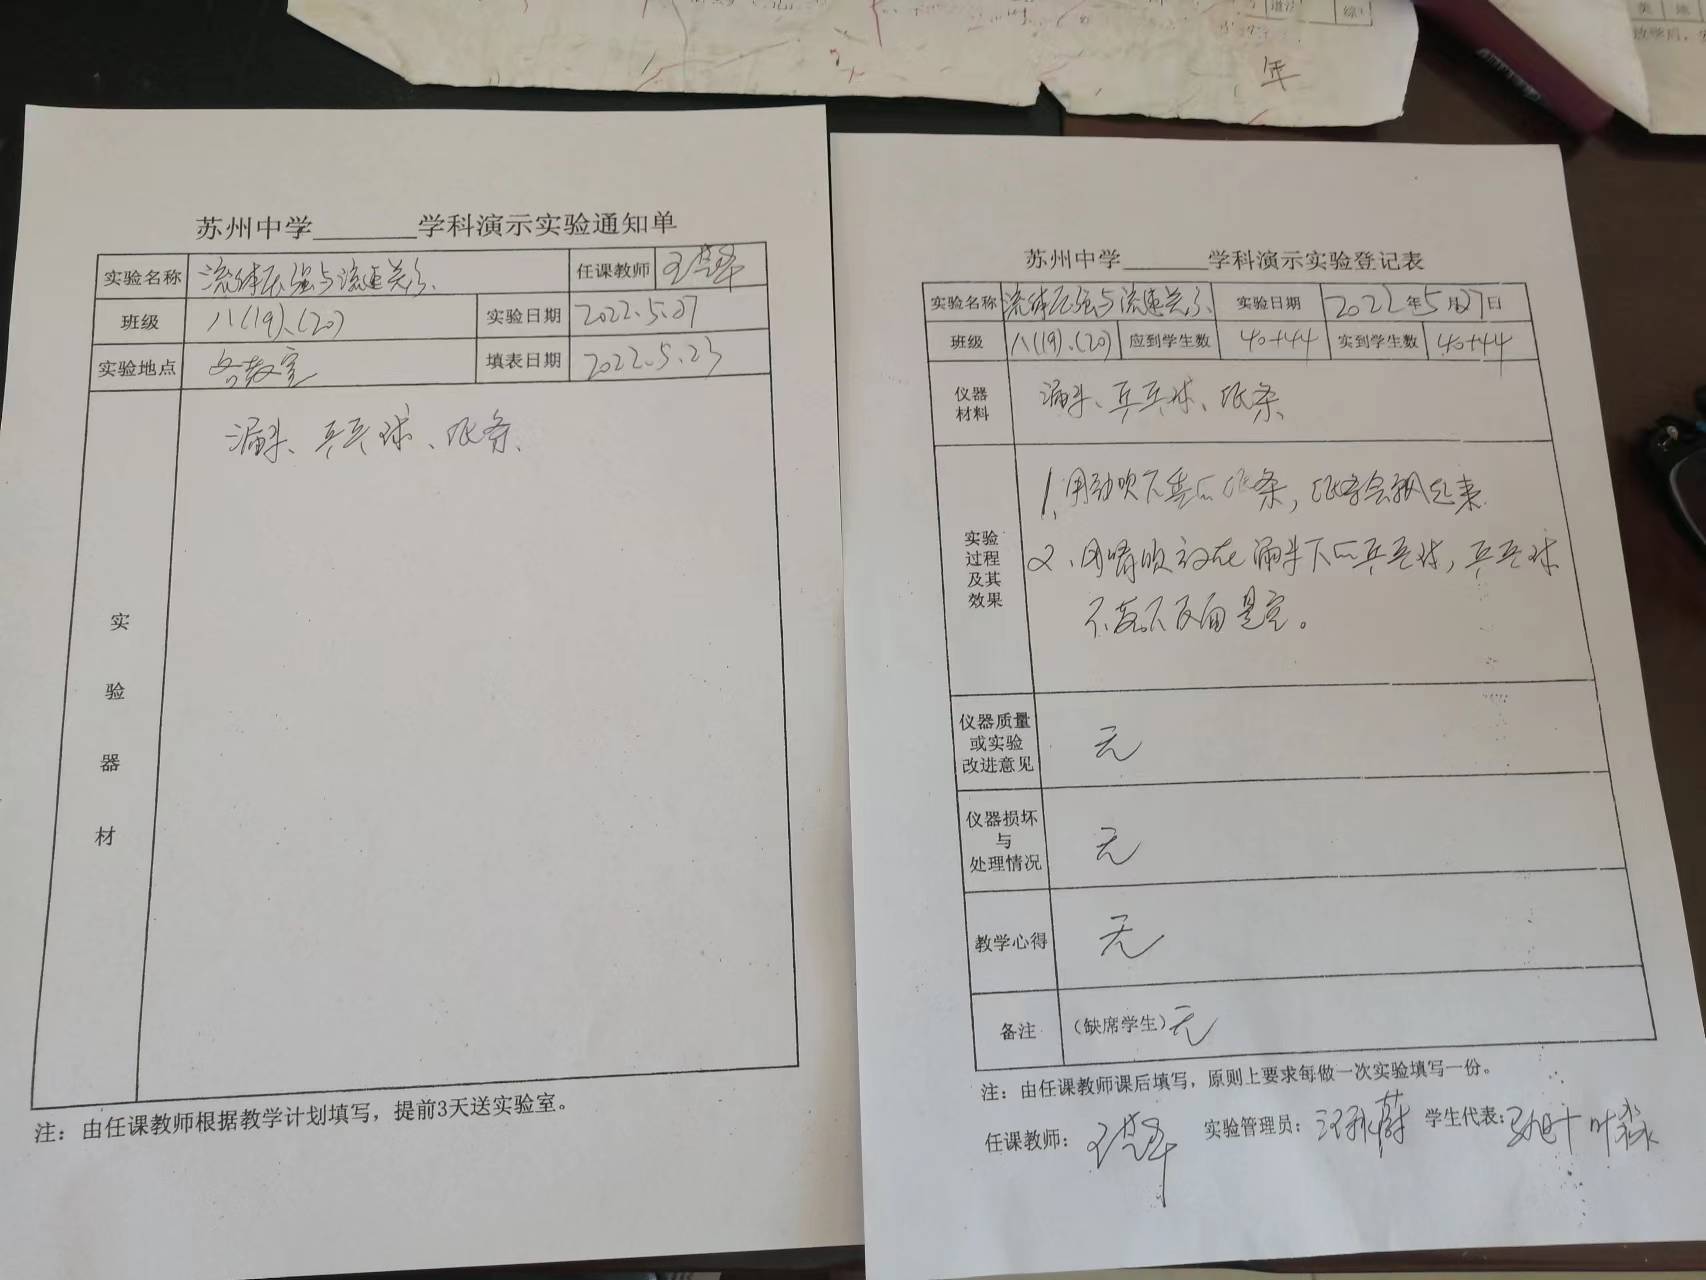 年
苏州中学______学科演示实验通知单
实验名称 流体压强与流速关系 任课教师
班级 八(19)、(20) 实验日期 2022.5.27
实验地点 各教室 填表日期 2022.5.23
实验器材 漏斗、乒乓球、纸条
注：由任课教师根据教学计划填写，提前3天送实验室。
苏州中学______学科演示实验登记表
实验名称 流体压强与流速关系 实验日期 2022年5月27日
班级 八(19)、(20) 应到学生数 40+44 实到学生数 40+44
仪器材料 漏斗、乒乓球、纸条
实验过程及其效果
1、用劲吹下垂的纸条，纸条会飘起来
2、用嘴吹放在漏斗下的乒乓球，乒乓球
不落下反而悬空。
仪器质量或实验改进意见 无
仪器损坏与处理情况 无
教学心得 无
备注 （缺席学生）无
注：由任课教师课后填写，原则上要求每做一次实验填写一份。
任课教师： 实验管理员： 学生代表：